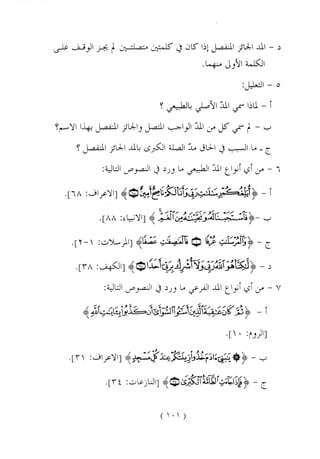 د - المد الجائز المنفصل إذا كان في كلمتين متصلتين لم يجز الوقف على
الكلمة الأولى منهما.
٥ - التعليل:
أ - لماذا سمي المد الأصلي بالطبيعي ؟
ب - لم سمي كل من المد الواجب المتصل والجائز المنفصل بهذا الاسم؟
ج - ما السبب في إدخال مد الصلة الكبرى بالمد الجائز المنفصل ؟
٦ - من أي أنواع المد الطبيعي ما ورد في النصوص التالية:
أ - ﴿أُبَلِّغُكُمْ رِسَٰلَٰتِ رَبِّي وَأَنَا۠ لَكُمْ نَاصِحٌ أَمِينٌ﴾ [الأعراف: ٦٨].
ب - ﴿فَٱسْتَجَبْنَا لَهُۥ وَنَجَّيْنَٰهُ مِنَ ٱلْغَمِّ﴾ [الأنبياء: ٨٨].
ج - ﴿وَٱلْمُرْسَلَٰتِ عُرْفًا ۝ فَٱلْعَٰصِفَٰتِ عَصْفًا﴾ [المرسلات: ١-٢].
د - ﴿لَّٰكِنَّا۠ هُوَ ٱللَّهُ رَبِّي وَلَآ أُشْرِكُ بِرَبِّيٓ أَحَدًا﴾ [الكهف: ٣٨].
٧ - من أي أنواع المد الفرعي ما ورد في النصوص التالية:
أ - ﴿ثُمَّ كَانَ عَٰقِبَةَ ٱلَّذِينَ أَسَٰٓـُٔوا۟ ٱلسُّوٓأَىٰٓ أَن كَذَّبُوا۟ بِـَٔايَٰتِ ٱللَّهِ﴾
[الروم: ١٠].
ب - ﴿۞ يَٰبَنِيٓ ءَادَمَ خُذُوا۟ زِينَتَكُمْ عِندَ كُلِّ مَسْجِدٍ﴾ [الأعراف: ٣١].
ج - ﴿فَإِذَا جَآءَتِ ٱلطَّآمَّةُ ٱلْكُبْرَىٰ﴾ [النازعات: ٣٤].
( ١٠١ )